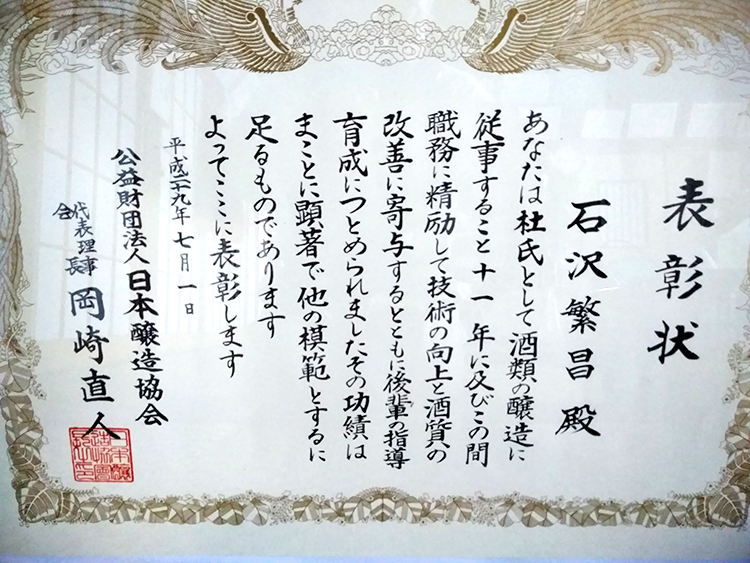 表彰状
石沢繁昌殿
あなたは杜氏として酒類の醸造に
従事すること十一年に及びこの間
職務に精励して技術の向上と酒質の
改善に寄与するとともに後輩の指導
育成につとめられましたその功績は
まことに顕著で他の模範とするに
足るものであります
よってここに表彰します
平成二十九年七月一日
公益財団法人日本醸造協会
代表理事
会長
岡崎直人